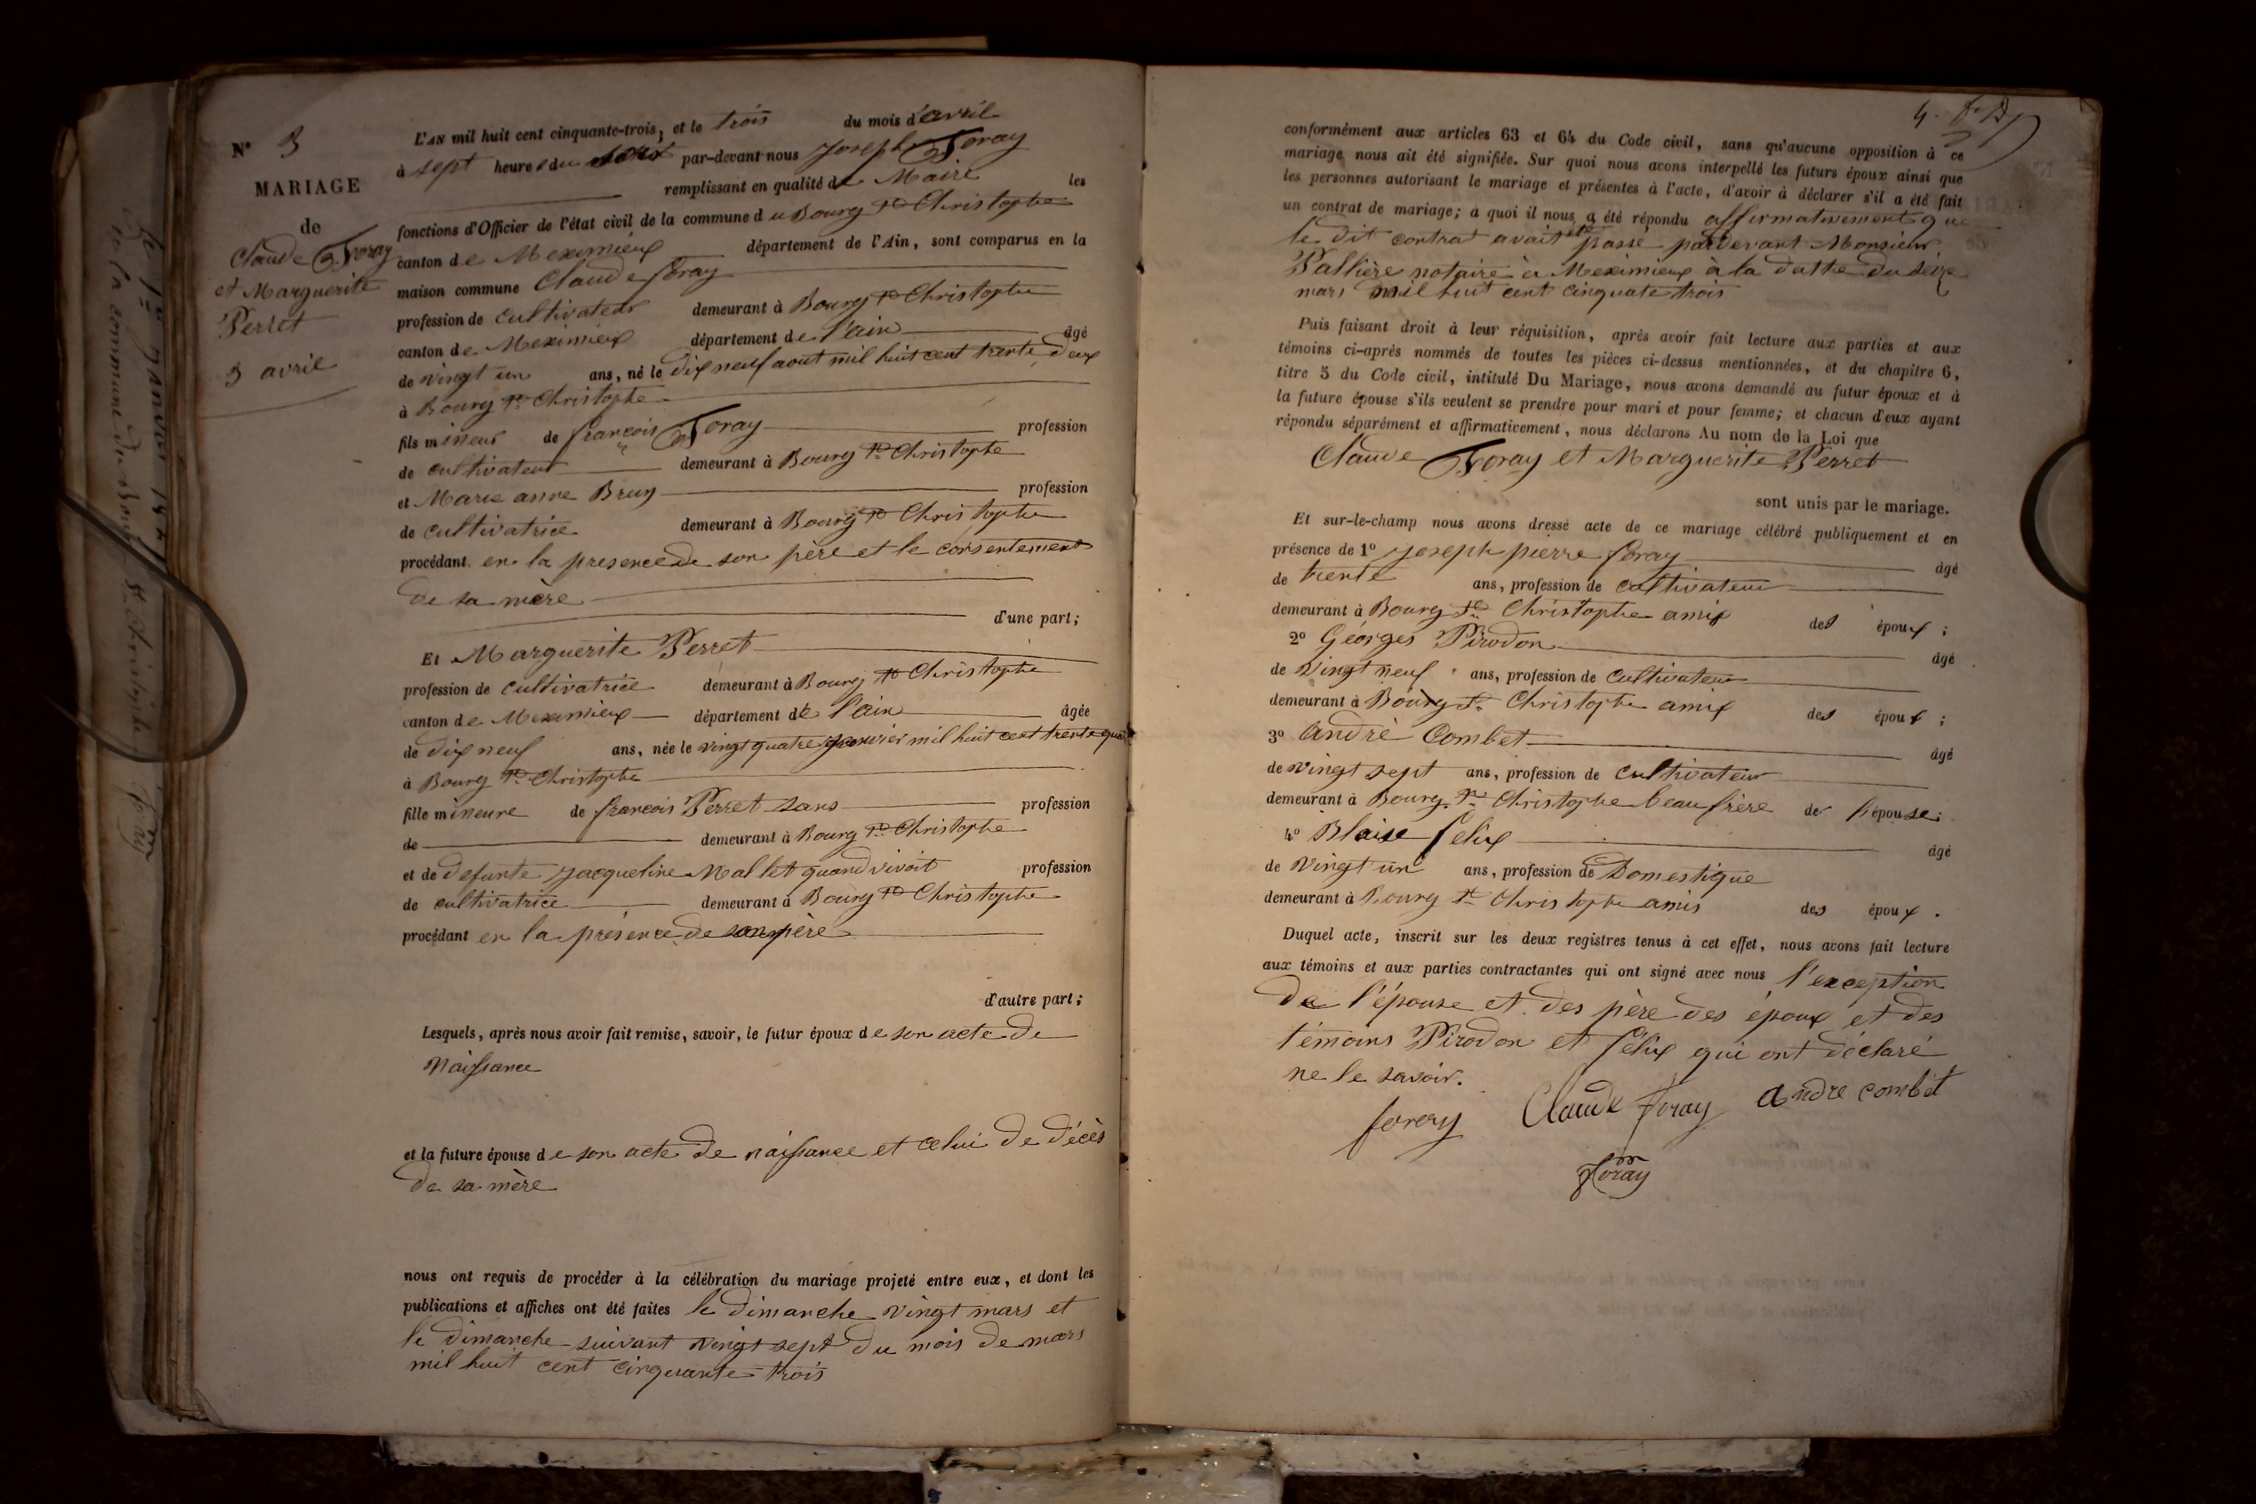 N° 3
MARIAGE
de
Claude Foray
et Marguerite
Perret
3 avril
L'AN mil huit cent cinquante-trois, et le trois du mois d'avril
à sept heures du soir par-devant nous Joseph Foray
remplissant en qualité de Maire les
fonctions d'Officier de l'état civil de la commune du Bourg St Christophe
canton de Meximieux département de l'Ain, sont comparus en la
maison commune Claude foray
profession de cultivateur demeurant à Bourg St Christophe
canton de Meximieux département de l'ain âgé
de vingt un ans, né le dix neuf aout mil huit cent trente deux
à Bourg St Christophe
fils mineur de françois Foray profession
de cultivateur demeurant à Bourg St Christophe
et Marie anne Brun profession
de cultivatrice demeurant à Bourg St Christophe
procédant en la presence de son père et le consentement
de sa mère
d'une part;
Et Marguerite Perret
profession de cultivatrice demeurant à Bourg St Christophe
canton de Meximieux département de l'ain âgée
de dix neuf ans, née le vingt quatre janvier mil huit cent trente quatre
à Bourg St Christophe
fille mineure de francois Perret sans profession
de demeurant à Bourg St Christophe
et de defunte jacqueline Mallet quand vivait profession
de cultivatrice demeurant à Bourg St Christophe
procédant en la présence de son père
d'autre part;
Lesquels, après nous avoir fait remise, savoir, le futur époux de son acte de
Naissance
et la future épouse de son acte de naissance et celui de décès
de sa mère
nous ont requis de procéder à la célébration du mariage projeté entre eux, et dont les
publications et affiches ont été faites le dimanche vingt mars et
le dimanche suivant vingt sept du mois de mars
mil huit cent cinquante trois
4.
conformément aux articles 63 et 64 du Code civil, sans qu'aucune opposition à ce
mariage nous ait été signifiée. Sur quoi nous avons interpellé les futurs époux ainsi que
les personnes autorisant le mariage et présentes à l'acte, d'avoir à déclarer s'il a été fait
un contrat de mariage; à quoi il nous a été répondu affirmativement que
le dit contrat avait été passé pardevant Monsieur
Pallière notaire à Meximieux à la datte du seize
mars mil huit cent cinquate trois
Puis faisant droit à leur réquisition, après avoir fait lecture aux parties et aux
témoins ci-après nommés de toutes les pièces ci-dessus mentionnées, et du chapitre 6,
titre 5 du Code civil, intitulé Du Mariage, nous avons demandé au futur époux et à
la future épouse s'ils veulent se prendre pour mari et pour femme; et chacun d'eux ayant
répondu séparément et affirmativement, nous déclarons Au nom de la Loi que
Claude Foray et Marguerite Perret
sont unis par le mariage.
Et sur-le-champ nous avons dressé acte de ce mariage célébré publiquement et en
présence de 1° Joseph pierre foray âgé
de trente ans, profession de cultivateur
demeurant à Bourg St Christophe amis des époux;
2° Géorges Pirodon âgé
de vingt neuf ans, profession de cultivateur
demeurant à Bourg St Christophe amis des époux;
3° andrè Combet âgé
de vingt sept ans, profession de cultivateur
demeurant à Bourg St Christophe beau frère de l'épouse;
4° Blaise felix âgé
de vingt un ans, profession de Domestique
demeurant à Bourg St Christophe amis des époux.
Duquel acte, inscrit sur les deux registres tenus à cet effet, nous avons fait lecture
aux témoins et aux parties contractantes qui ont signé avec nous l'exception
de l'épouse et des père des époux et des
témoins Pirodon et felix qui ont déclaré
ne le savoir.
foray Claude foray andre combet
foray